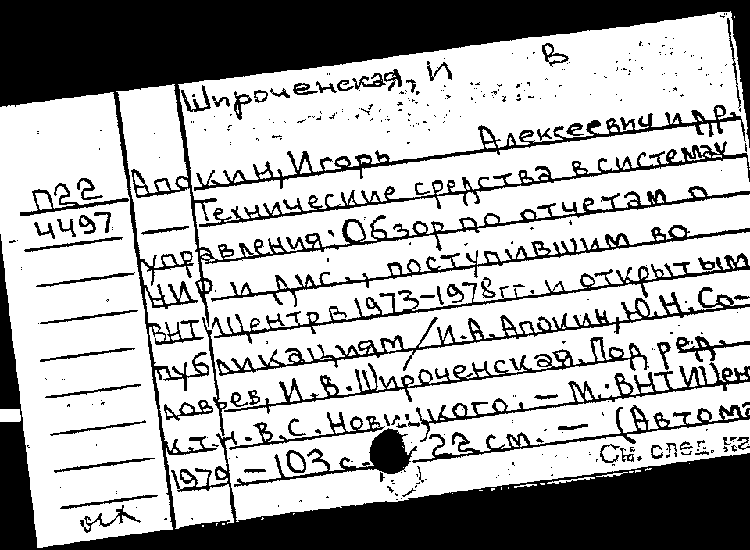 Шпроченская, И В
Апокин, Игорь Алексеевич и др.
П22
4497
— Технические средства в системах
управления: Обзор по отчетам о
НИР и дис., поступившим во
ВНТИЦентр в 1973-1978гг. и открытым
публикациям / И.А. Апокин, Ю.Н. Со-
ловьев, И.В. Шпроченская. Под ред.
к.т.н. В.С. Новицкого. — М.: ВНТИЦен
1979. — 103 с. 22 см. — (Автома
См. след. ка